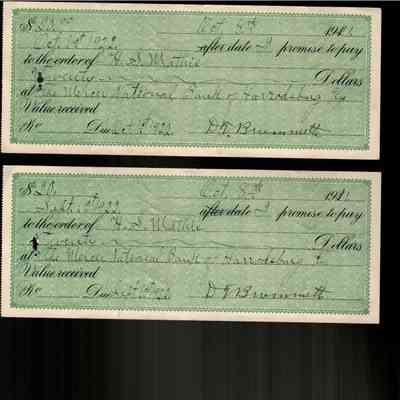 $20.00 Oct 8th 1921
Oct 1st 1922 after date I promise to pay
to the order of H. S. Mathis
Twenty Dollars
at The Mercer National Bank of Harrodsburg Ky
Value received
No Due Oct 1st 1922 D T Brummett
$20. Oct 8th 1921
Sept 1st 1922 after date I promise to pay
to the order of H. S. Mathis
Twenty Dollars
at The Mercer National Bank of Harrodsburg
Value received
No Due Sept 1st 1922 D T Brummett